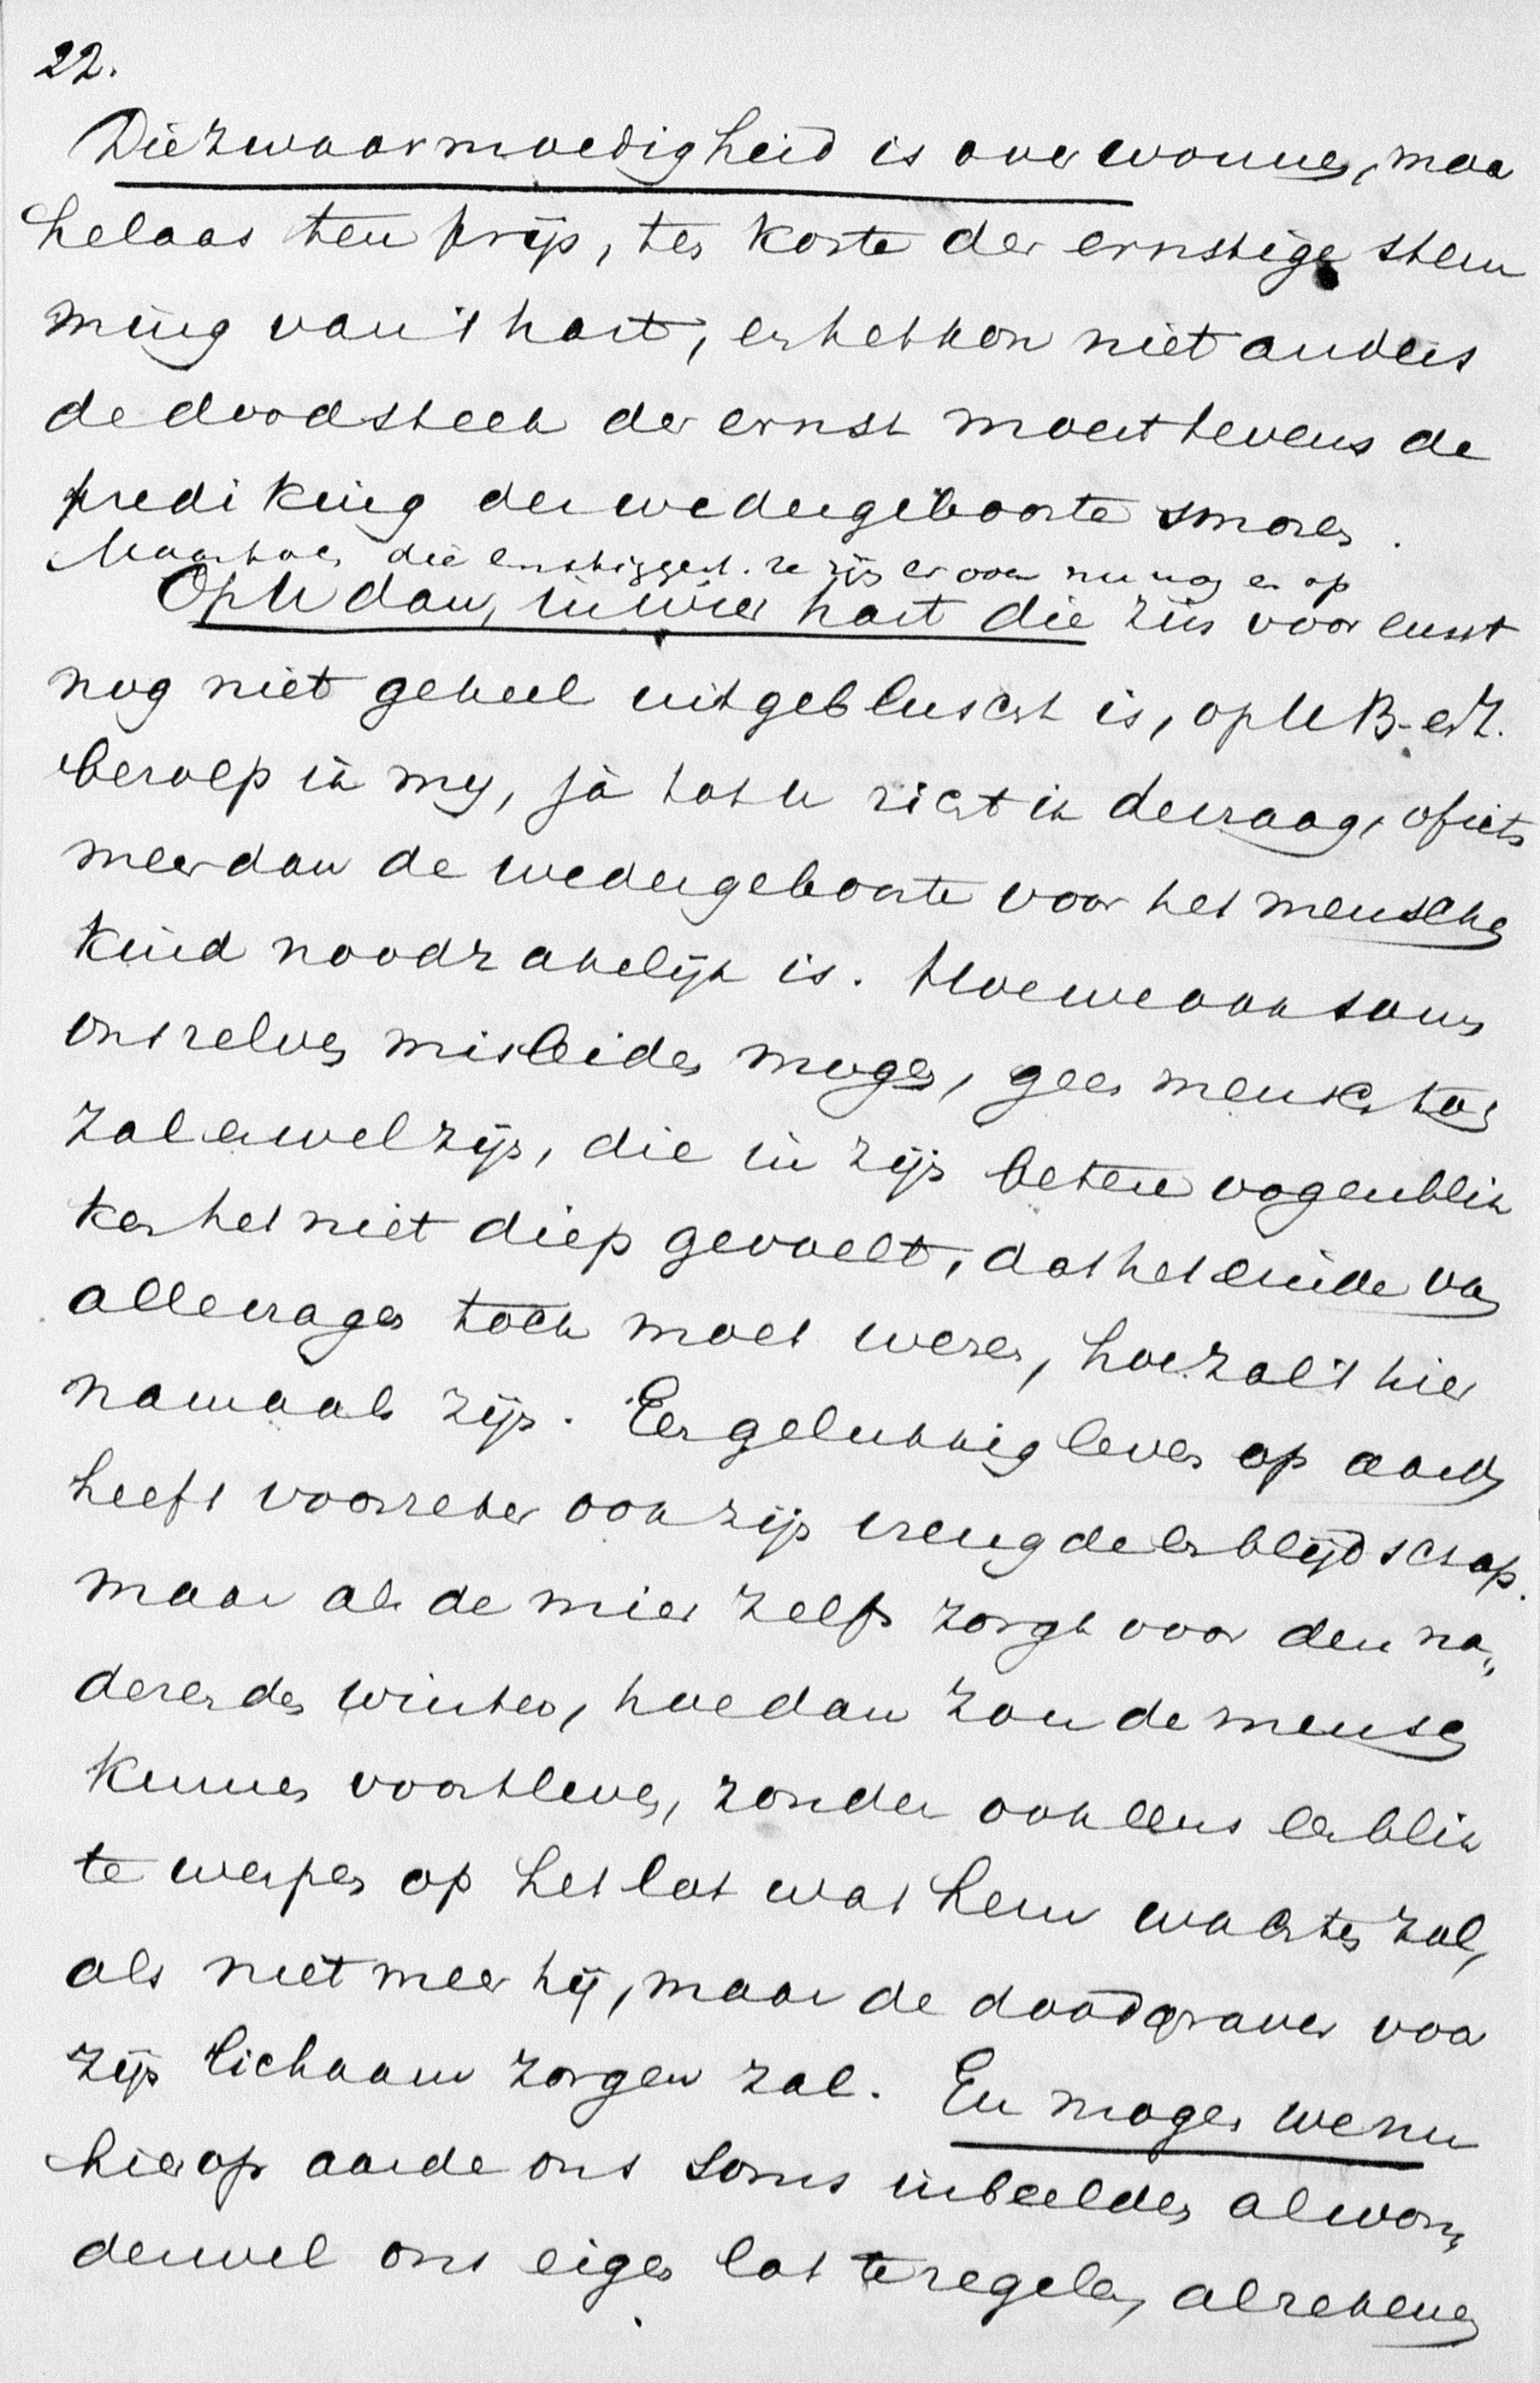 22.
Die zwaarmoedigheid is overwonnen, maar
helaas ten prijs, ten koste der ernstige stem
ming van 't hart, en het kon niet anders
de doodsteek der ernst moest tevens de
prediking der wedergeboorte smoren.
Maar toch, die ernstigen. ze zijn er ook nu nog en op
Op U dan, in wier hart die zin voor ernst
nog niet geheel uitgebluscht is, op U B. en Z.
beroep ik my, ja tot U richt ik de vraag, of iets
meer dan de wedergeboorte voor het menschen
kind noodzakelijk is. Hoe we ook soms
ons zelven misleiden mogen, geen mensch toch
zal er wel zijn, die in zijn betere oogenblik
ken het niet diep gevoelt, dat het einde van
alle vragen toch moet wezen, hoe zal 't hier
namaals zijn. Een gelukkig leven op aarde
heeft voorzeker ook zijn vreugde en blijdschap.
maar als de mier zelfs zorgt voor den na„
derenden winter, hoe dan zou de mensch
kunnen voortleven, zonder ook eens een blik
te werpen op het lot wat hem wachten zal,
als niet meer hij, maar de doodgraver voor
zijn lichaam zorgen zal. En mogen we nu
hier op aarde ons soms inbeelden al won„
derwel ons eigen lot te regelen, al rekenen